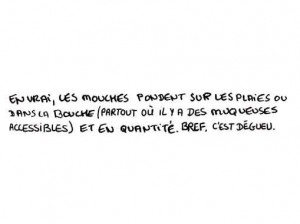 EN VRAI, LES MOUCHES PONDENT SUR LES PLAIES OU
DANS LA BOUCHE (PARTOUT OÙ IL Y A DES MUQUEUSES
ACCESSIBLES) ET EN QUANTITÉ. BREF, C'EST DÉGUEU.